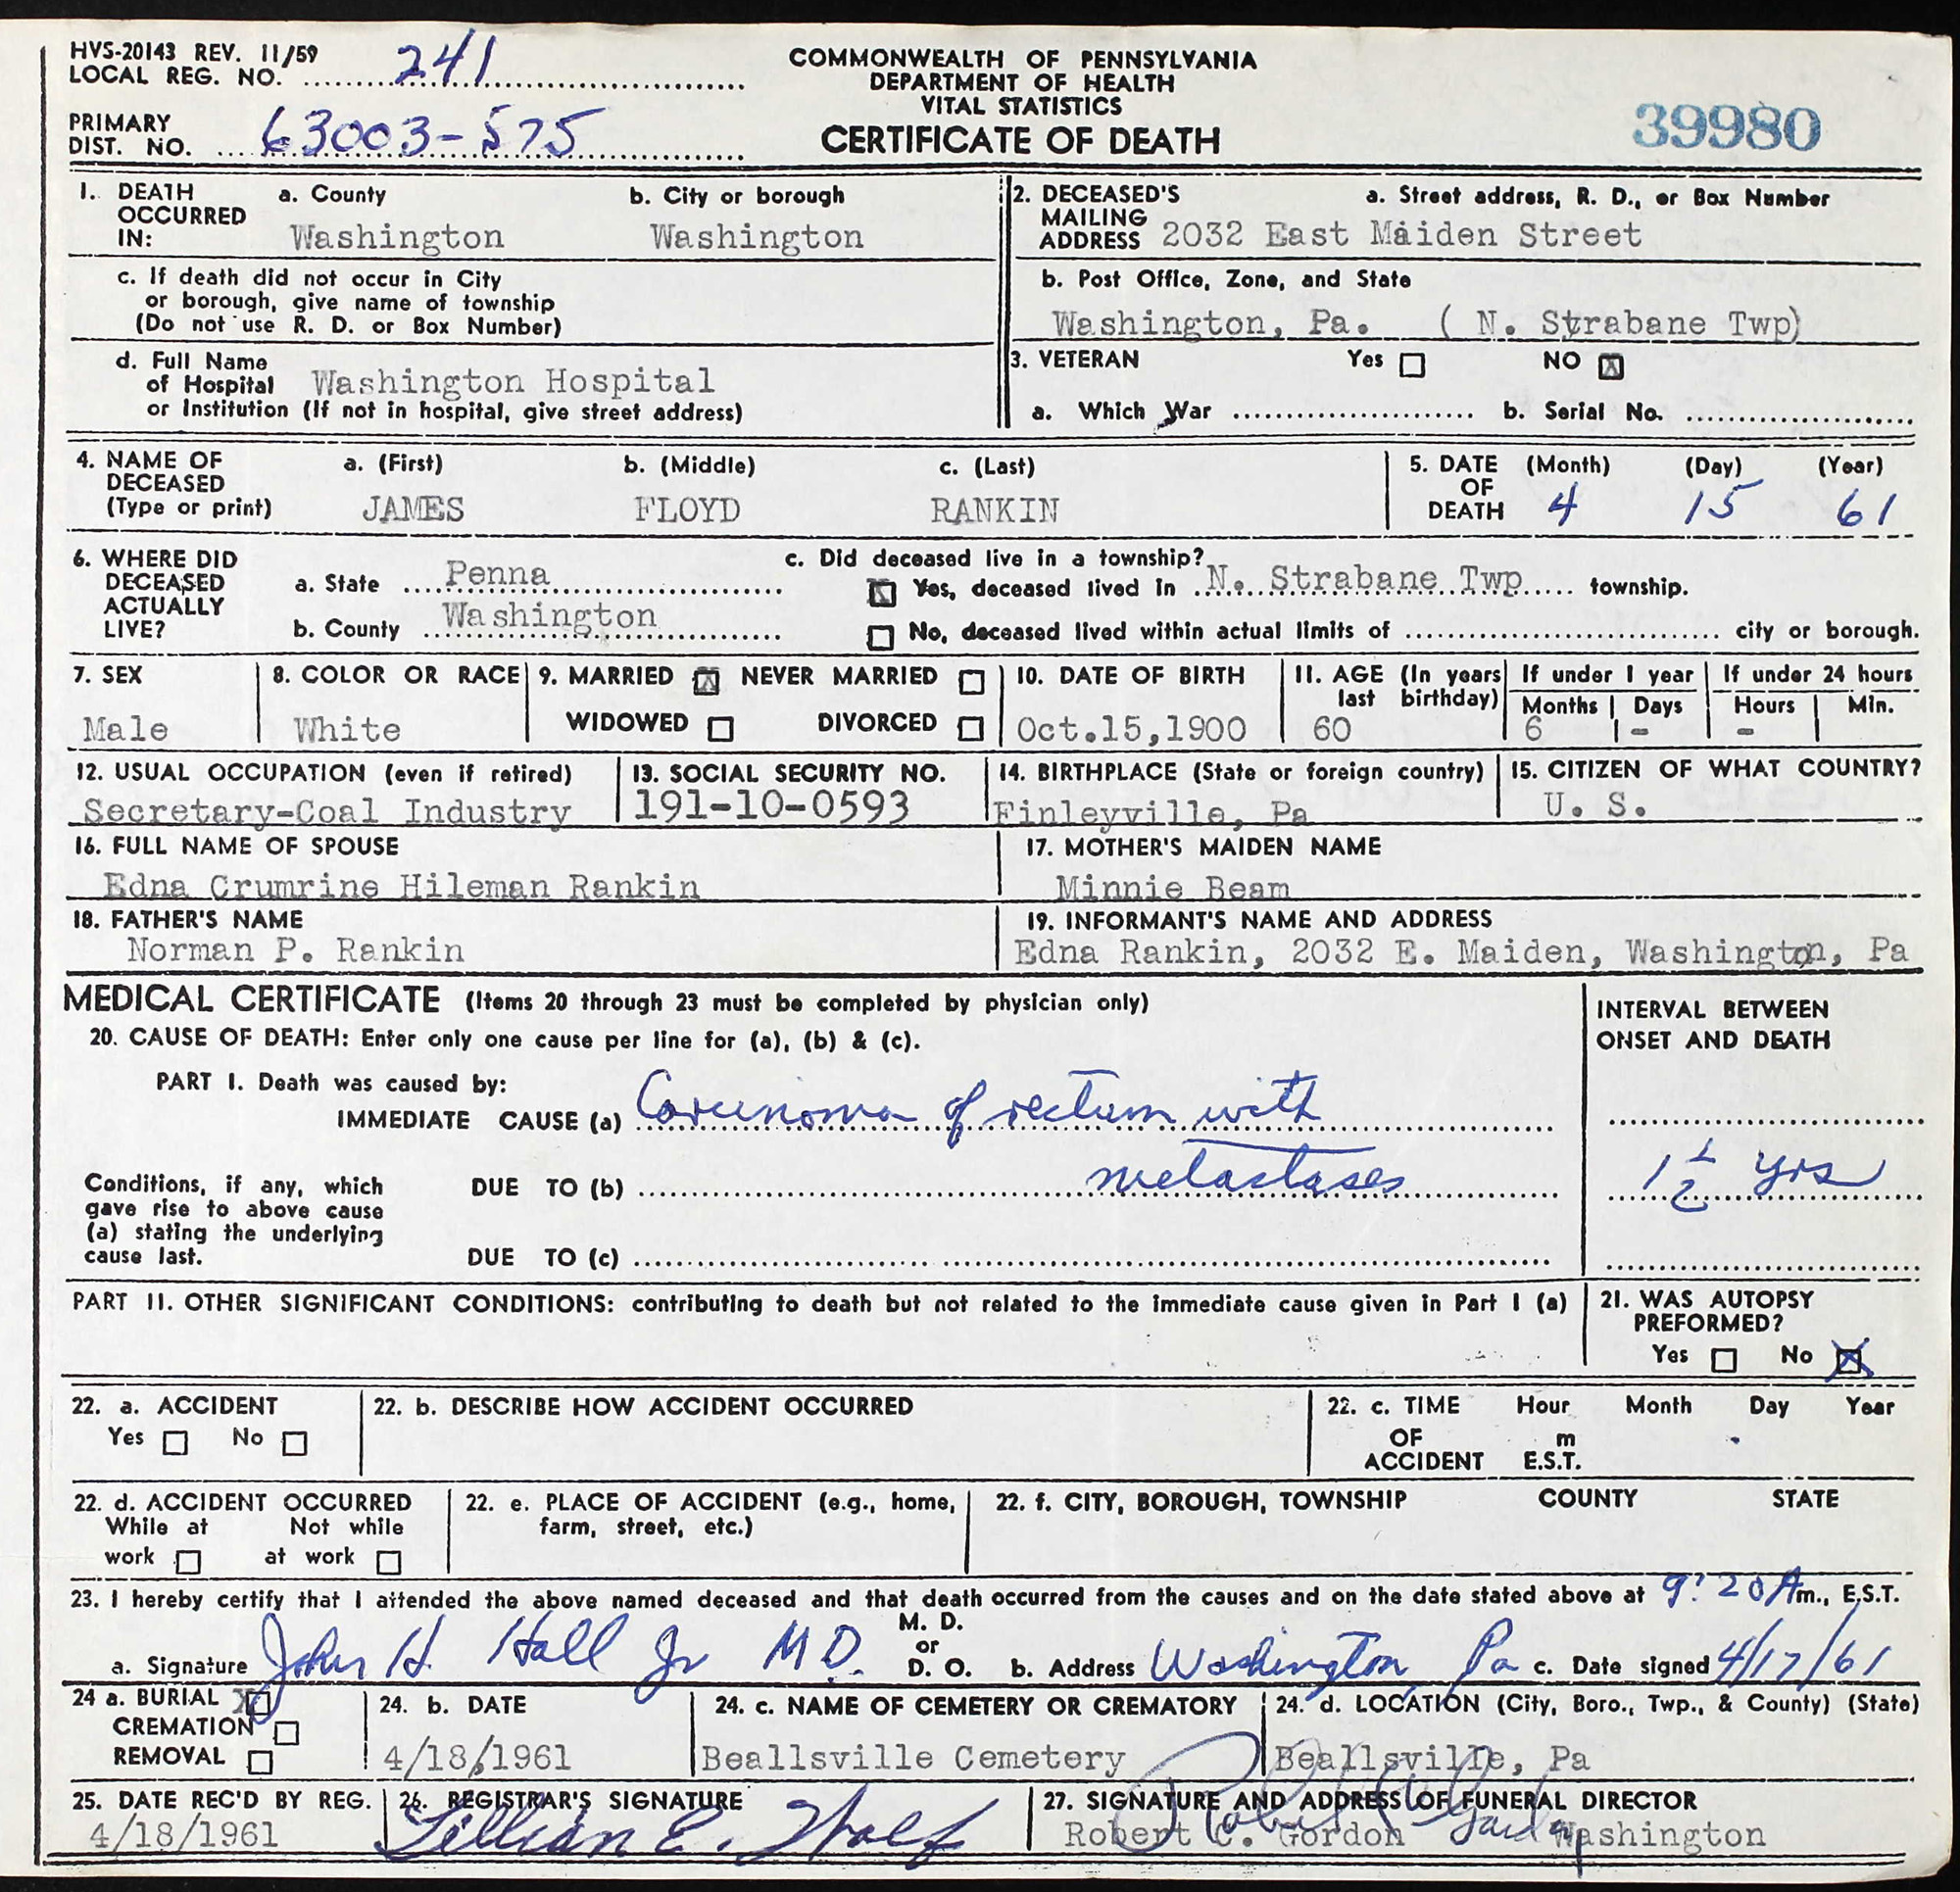 HVS-20143 REV. 11/59
LOCAL REG. NO. 241
PRIMARY
DIST. NO. 63003-575
COMMONWEALTH OF PENNSYLVANIA
DEPARTMENT OF HEALTH
VITAL STATISTICS
CERTIFICATE OF DEATH
39980
1. DEATH OCCURRED IN: a. County b. City or borough
Washington Washington
c. If death did not occur in City
or borough, give name of township
(Do not use R. D. or Box Number)
d. Full Name
of Hospital Washington Hospital
or Institution (If not in hospital, give street address)
2. DECEASED'S MAILING ADDRESS a. Street address, R. D., or Box Number
2032 East Maiden Street
b. Post Office, Zone, and State
Washington, Pa. ( N. Strabane Twp)
3. VETERAN Yes ☐ NO ☒
a. Which War b. Serial No.
4. NAME OF DECEASED (Type or print) a. (First) b. (Middle) c. (Last)
JAMES FLOYD RANKIN
5. DATE OF DEATH (Month) (Day) (Year)
4 15 61
6. WHERE DID DECEASED ACTUALLY LIVE?
a. State Penna
b. County Washington
c. Did deceased live in a township?
☒ Yes, deceased lived in N. Strabane Twp township.
☐ No, deceased lived within actual limits of city or borough.
7. SEX
Male
8. COLOR OR RACE
White
9. MARRIED ☒ NEVER MARRIED ☐
WIDOWED ☐ DIVORCED ☐
10. DATE OF BIRTH
Oct.15,1900
11. AGE (In years last birthday)
60
If under 1 year
Months Days
6 -
If under 24 hours
Hours Min.
-
12. USUAL OCCUPATION (even if retired)
Secretary-Coal Industry
13. SOCIAL SECURITY NO.
191-10-0593
14. BIRTHPLACE (State or foreign country)
Finleyville, Pa
15. CITIZEN OF WHAT COUNTRY?
U. S.
16. FULL NAME OF SPOUSE
Edna Crumrine Hileman Rankin
17. MOTHER'S MAIDEN NAME
Minnie Beam
18. FATHER'S NAME
Norman P. Rankin
19. INFORMANT'S NAME AND ADDRESS
Edna Rankin, 2032 E. Maiden, Washington, Pa
MEDICAL CERTIFICATE (Items 20 through 23 must be completed by physician only)
20. CAUSE OF DEATH: Enter only one cause per line for (a), (b) & (c).
INTERVAL BETWEEN
ONSET AND DEATH
PART I. Death was caused by:
IMMEDIATE CAUSE (a) Carcinoma of rectum with
Conditions, if any, which
gave rise to above cause
(a) stating the underlying
cause last.
DUE TO (b) metastases 1 1/2 yrs
DUE TO (c)
PART II. OTHER SIGNIFICANT CONDITIONS: contributing to death but not related to the immediate cause given in Part I (a)
21. WAS AUTOPSY
PREFORMED?
Yes ☐ No ☒
22. a. ACCIDENT
Yes ☐ No ☐
22. b. DESCRIBE HOW ACCIDENT OCCURRED
22. c. TIME OF ACCIDENT Hour Month Day Year
m
E.S.T.
22. d. ACCIDENT OCCURRED
While at work ☐ Not while at work ☐
22. e. PLACE OF ACCIDENT (e.g., home,
farm, street, etc.)
22. f. CITY, BOROUGH, TOWNSHIP COUNTY STATE
23. I hereby certify that I attended the above named deceased and that death occurred from the causes and on the date stated above at 9:20 Am., E.S.T.
a. Signature John H. Hall Jr M.D. M. D. or D. O. b. Address Washington, Pa c. Date signed 4/17/61
24 a. BURIAL ☒
CREMATION ☐
REMOVAL ☐
24. b. DATE
4/18,1961
24. c. NAME OF CEMETERY OR CREMATORY
Beallsville Cemetery
24. d. LOCATION (City, Boro., Twp., & County) (State)
Beallsville, Pa
25. DATE REC'D BY REG.
4/18/1961
26. REGISTRAR'S SIGNATURE
Lillian E. Wolf
27. SIGNATURE AND ADDRESS OF FUNERAL DIRECTOR
Robert C. Gordon
Robert C. Gordon Washington